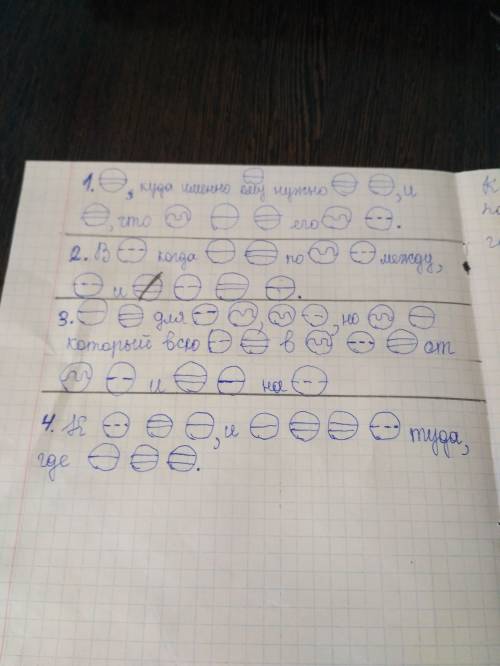 1. , куда именно ему нужно , и
, что его .
2. В когда по между,
и .
3. для , , но
который всю в от
и на
4. К , и туда,
где .